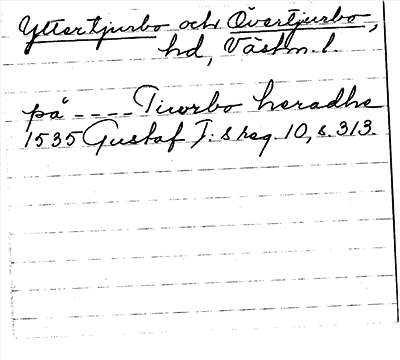 Yttertjurbo och Övertjurbo,
hd, Västm. l.
på ---- Tiwrbo heradhe
1535 Gustaf I: s reg. 10, s. 313.